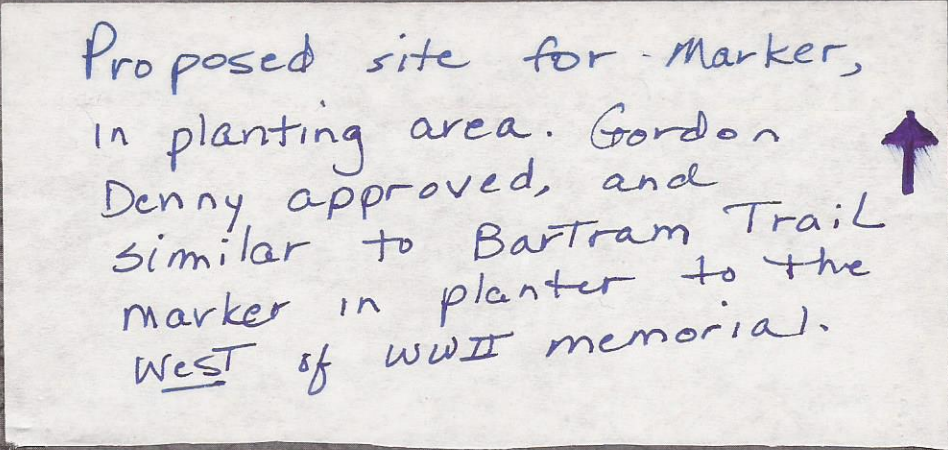 Proposed site for Marker,
in planting area. Gordon
Denny approved, and
similar to Bartram Trail
marker in planter to the
West of WWII memorial.